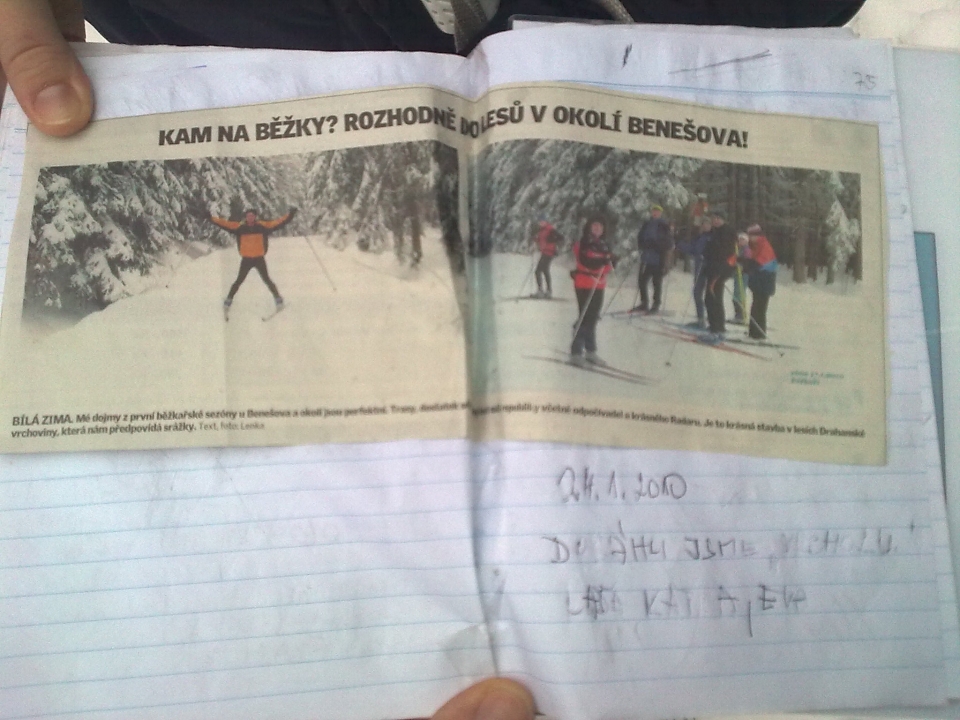 75
KAM NA BĚŽKY? ROZHODNĚ DO LESŮ V OKOLÍ BENEŠOVA!
BÍLÁ ZIMA. Mé dojmy z první běžkařské sezóny u Benešova a okolí jsou perfektní. Trasy, dostatek republiky včetně odpočívadel a krásného Radaru. Je to krásná stavba v lesích Drahanské
vrchoviny, která nám předpovídá srážky. Text, foto: Lenka
24.1.2010
JSME
A EVA